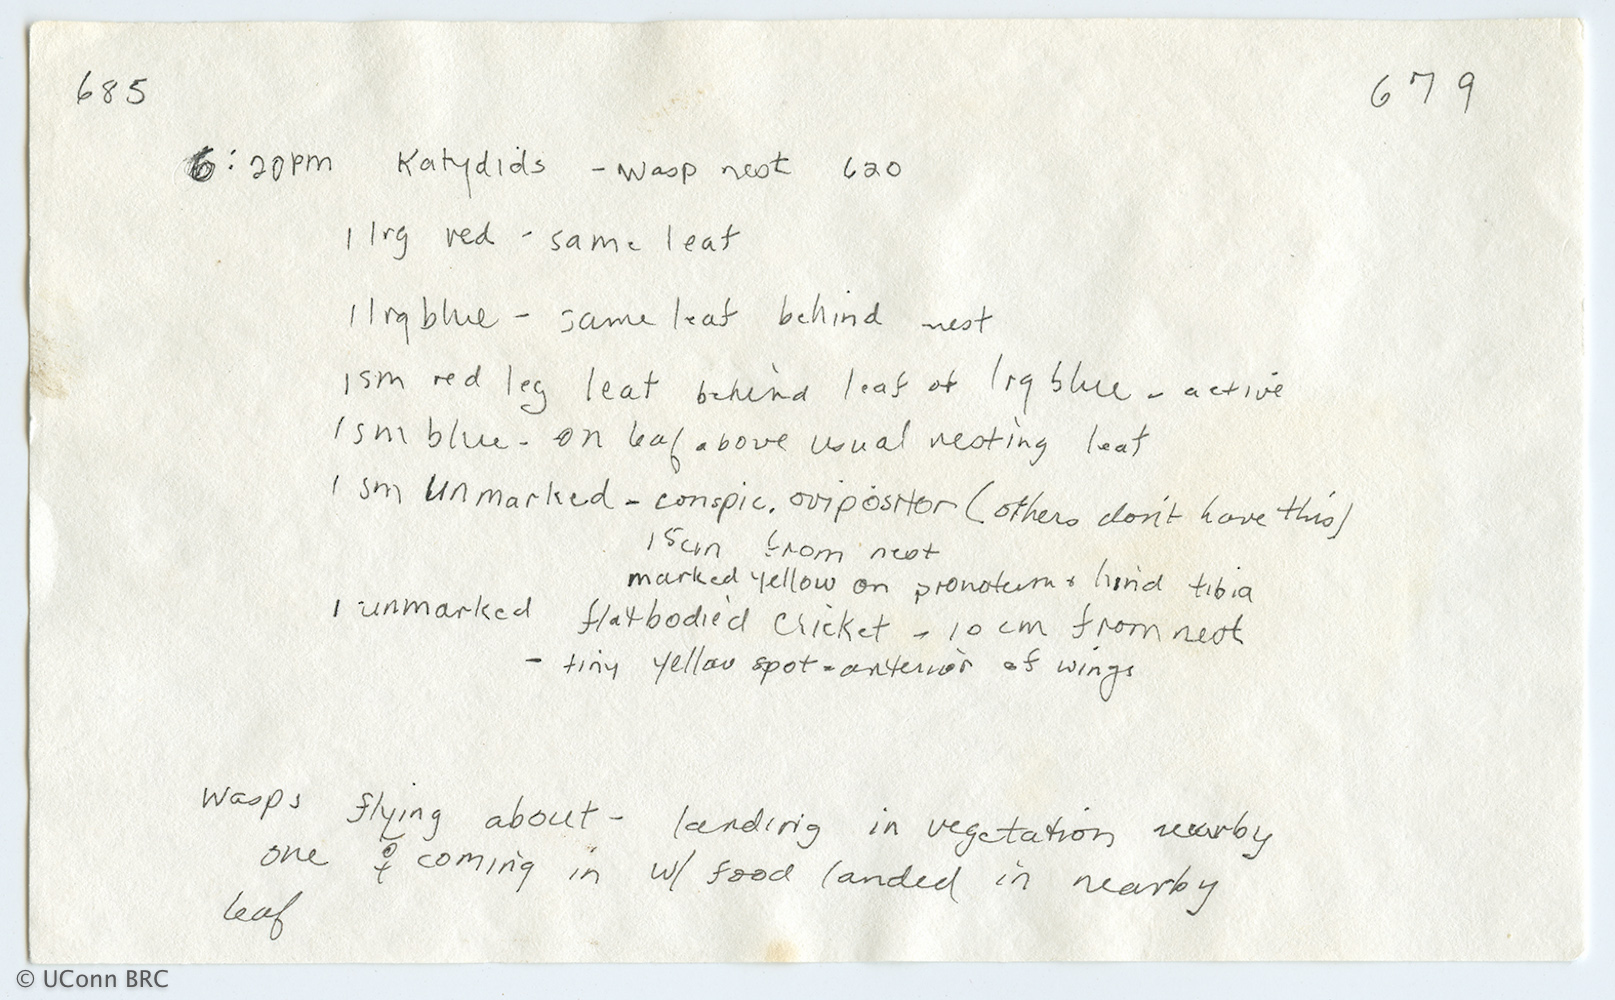 685 679
6:20pm Katydids - Wasp nest 620
1 lrg red - same leaf
1 lrg blue - same leaf behind nest
1 sm red leg leaf behind leaf of lrg blue - active
1 sm blue - on leaf above usual nesting leaf
1 sm unmarked - conspic. ovipositor (others don't have this)
15cm from nest
marked yellow on pronotum + hind tibia
1 unmarked flatbodied cricket - 10 cm from nest
- tiny yellow spot - anterior of wings
Wasps flying about - landing in vegetation nearby
one ♀ coming in w/ food landed in nearby
leaf
© UConn BRC